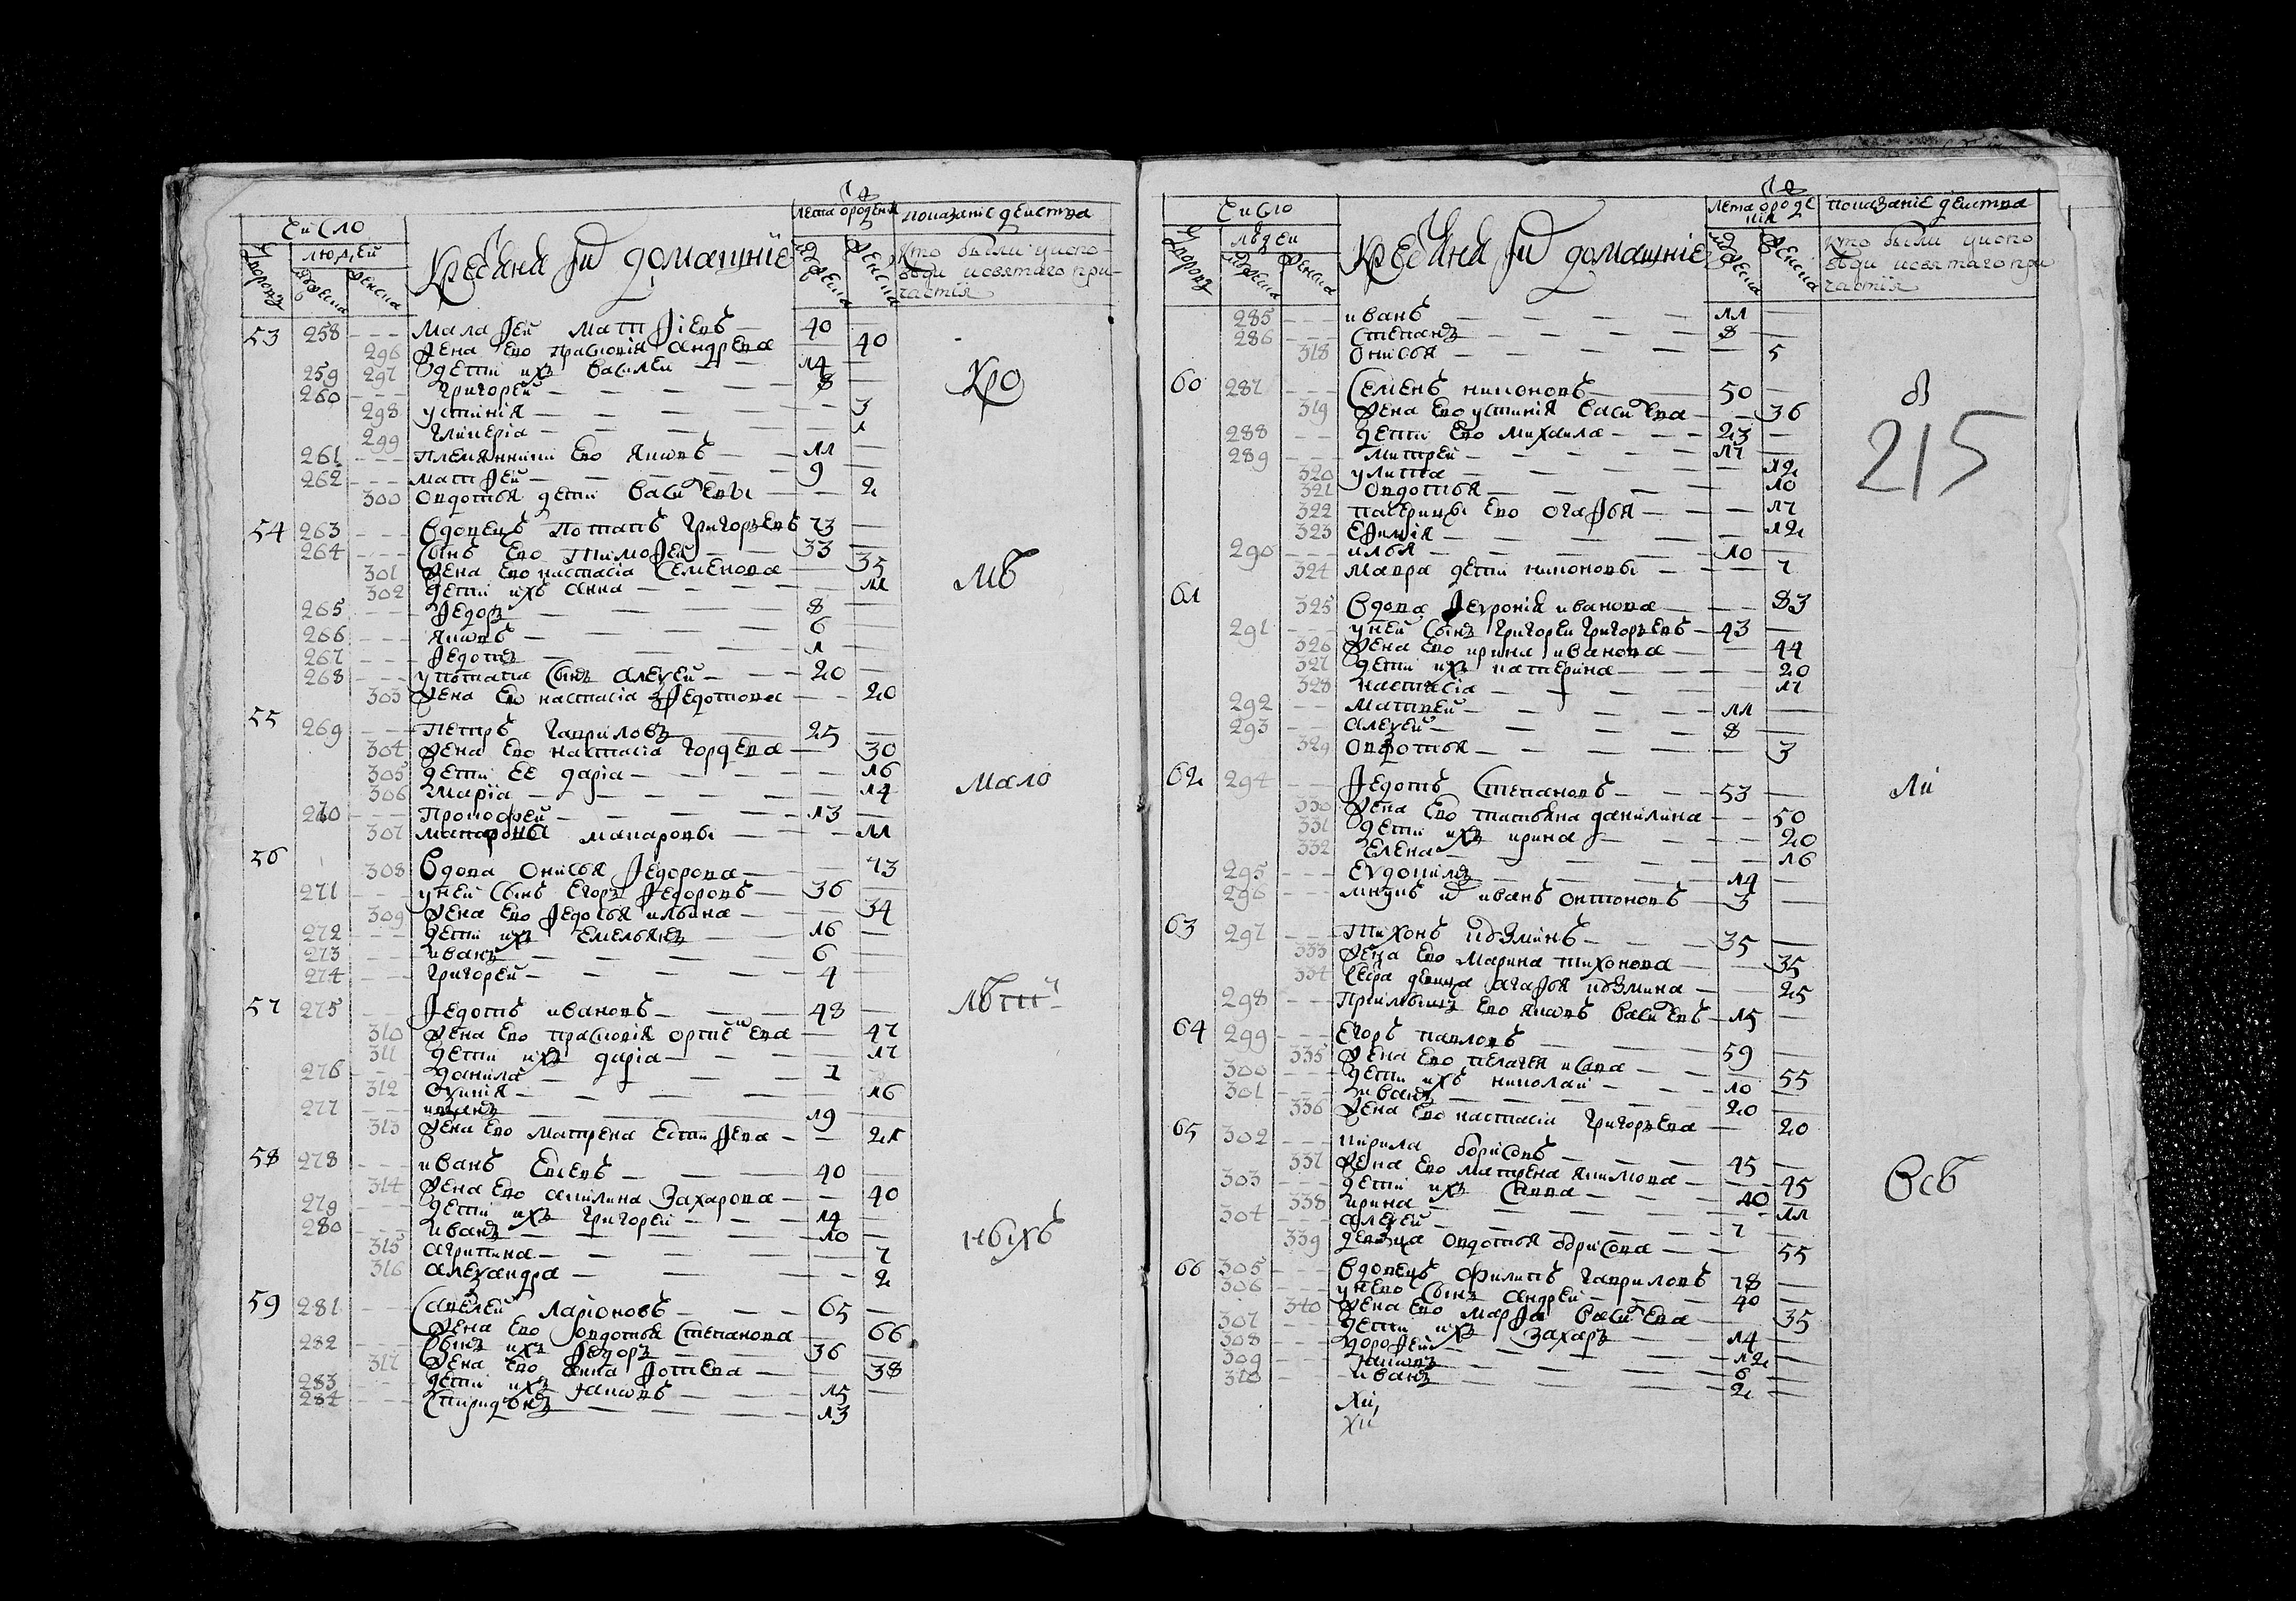 Число
людей
Дворовъ
мужеска
женска
Крестьяня и домашніе
Лета о рожденіи
мужеска
женска
показаніе действа
Кто были у испо-
веди и святаго при-
частія
53 258 Малафей Матфіевъ 40
296 Жена ево прасковія Андреева 40
259 297 дети ихъ василей 14
260 григорей 8
298 устинія 3
299 гликеріа 1
261 племянники ево яковъ 11
262 матфей 9
300 овдотья дети васильевы 2
54 263 вдовецъ потапъ григорьевъ 73
264 Сынъ ево тимофей 33
301 Жена ево настасіа Семенова 35
302 дети ихъ анна 11
265 федоръ 8
266 яковъ 6
267 федотъ 1
268 у потапа сынъ алексей 20
303 Жена ево настасіа федотова 20
55 269 петръ гавриловъ 25
304 Жена ево настасіа гордеева 30
305 дети ее даріа 16
306 маріа 14
270 прокофей 13
307 макаровы 11
56 308 вдова онисья федорова 73
271 у ней сынъ егоръ федоровъ 36
309 Жена ево федосья ильина 34
272 дети ихъ емельянъ 16
273 иванъ 6
274 григорей 4
57 275 федотъ ивановъ 48
310 Жена ево прасковія 47
311 дети ихъ даріа 17
276 данила 1
312 16
277 иванъ 19
313 Жена ево матрена естифева 21
58 278 иванъ 40
314 Жена ево акилина захарова 40
279 дети ихъ григорей 14
280 иванъ 10
315 агрипина 7
316 александра 2
59 281 савелей ларіоновъ 65
Жена ево овдотья степанова 66
282 сынъ ихъ федоръ 36
317 Жена ево анна фотиева 38
283 дети ихъ яковъ 15
284 спиридонъ 13
Кро
мѣ
мало
лѣтн
ныхъ
Число
людей
Дворовъ
мужеска
женска
Крестьяня и домашніе
Лета о рожде
нія
мужеска
женска
показаніе действа
кто были у испо
веди и святаго при
частія
285 иванъ 11
286 степанъ 8
318 онисья 5
60 287 семенъ никоновъ 50
319 Жена ево устинія васильева 36
288 дети ево михаила 23
289 митрей 17
320 улита 12
321 овдотья 10
322 пасерицы ево огафья 17
323 ефимія 12
290 илья 10
324 мавра дети никоновы 7
61 325 вдова февронія иванова 83
291 у ней сынъ григорей григорьевъ 43
326 Жена ево ирина иванова 44
327 дети ихъ катерина 20
328 настасіа 17
292 матвей 11
293 алексей 8
329 овдотья 3
62 294 федотъ степановъ 53
330 Жена ево татьяна данилина 50
331 дети ихъ ирина 20
332 елена 16
295 евдокимъ 14
296 внукъ и иванъ онтоновъ 3
63 297 тихонъ кузминъ 35
333 Жена ево марина тихонова 35
334 сестра девица агафья кузмина 25
298 ево яковъ васильевъ 15
64 299 егоръ павловъ 59
335 Жена ево пелагея 55
300 дети ихъ николай 10
301 иванъ 20
336 Жена ево настасіа григорьева 20
65 302 кирила борисовъ 45
337 Жена ево матрена якимова 45
303 дети ихъ савва 10
338 ирина 11
304 алексей 7
339 девица овдотья борисова 55
66 305 вдовецъ филипъ гавриловъ 78
306 у нево сынъ андрей 40
340 Жена ево марфа васильева 35
307 дети ихъ захаръ 14
308 дорофей 12
309 яковъ 6
310 иванъ 2
в
215
ли
всѣ